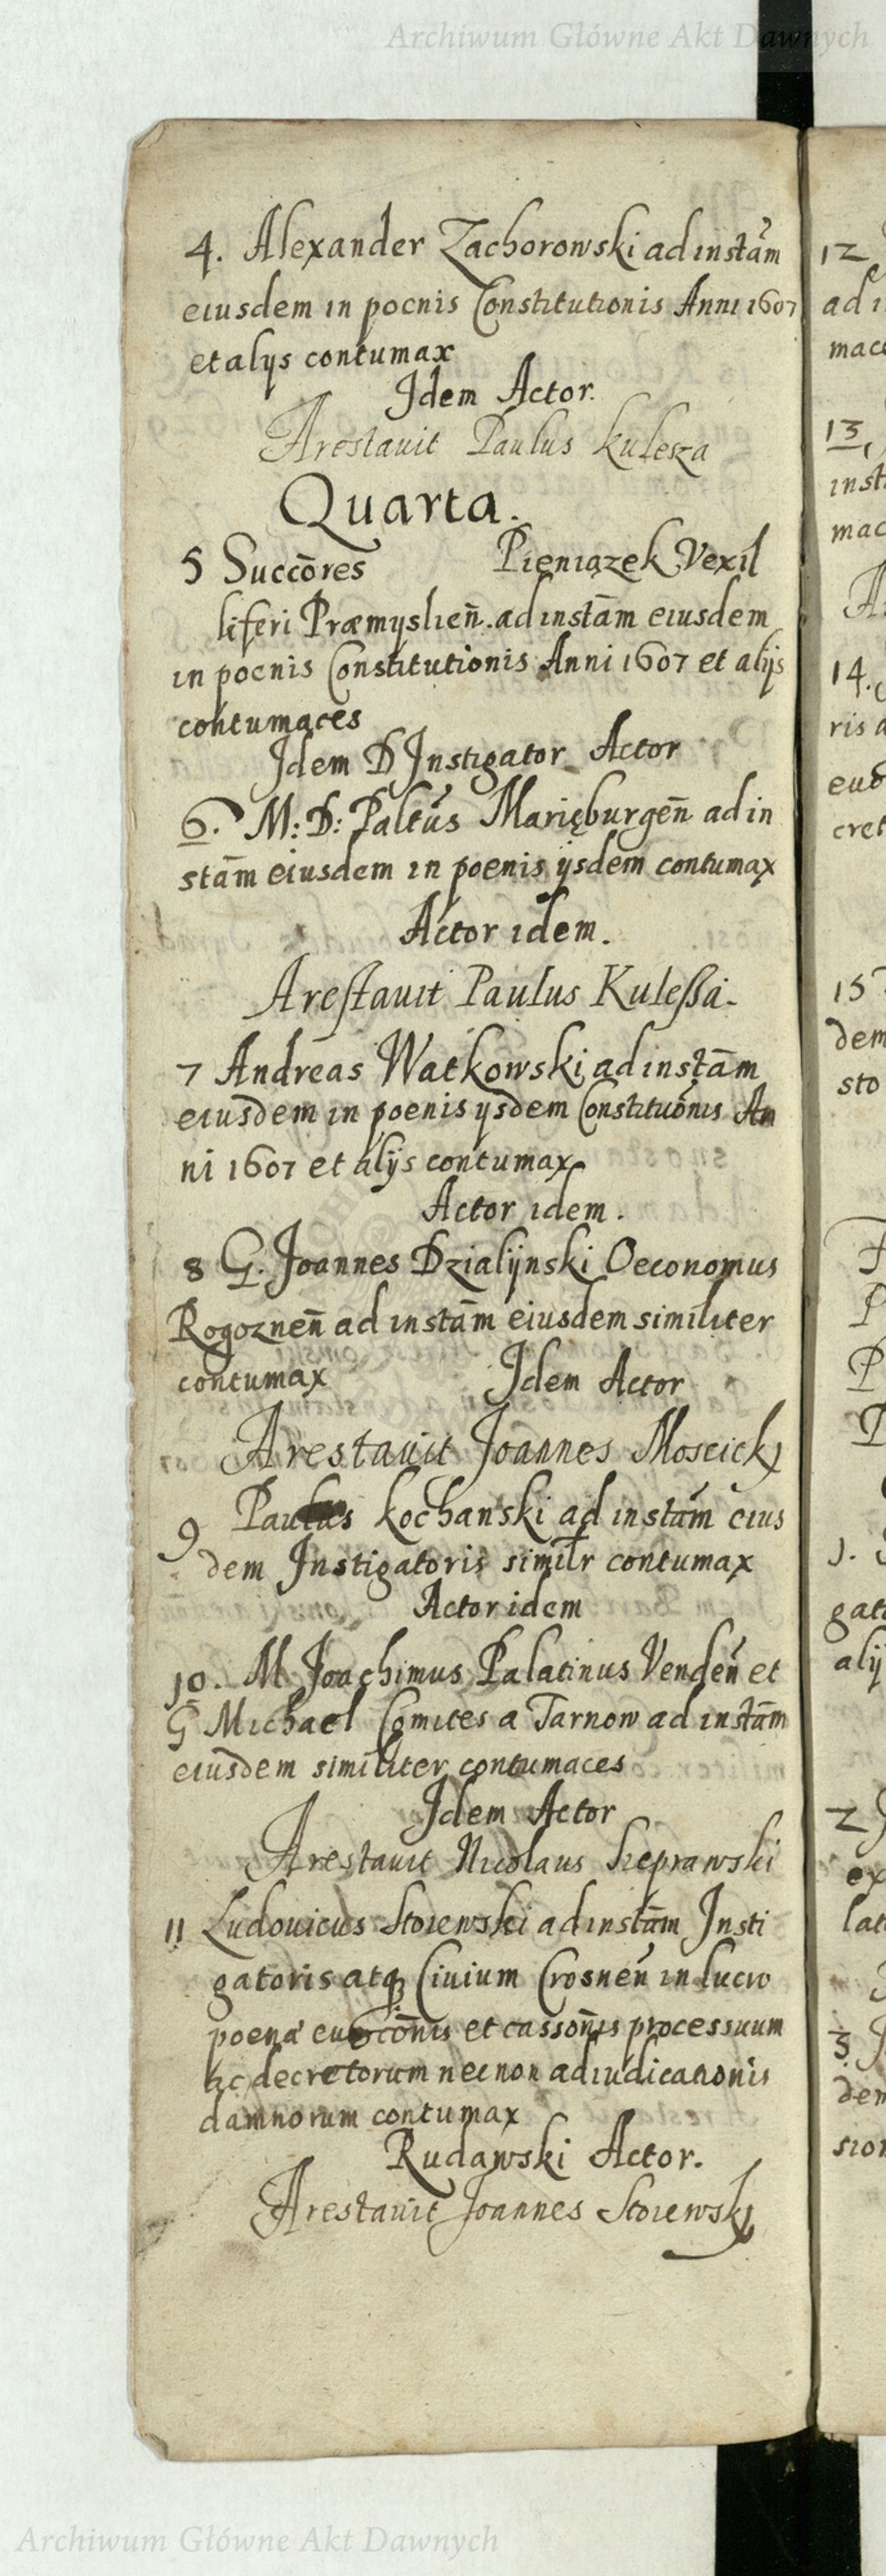 Archiwum Główne Akt Dawnych
4. Alexander Zachorowski ad instãm
eiusdem in poenis Constitutionis Anni 1607
et alys contumax
Idem Actor.
Arestavit Paulus kulesza
Quarta.
5 Succōres Pieniązek Vexil
liferi Præmyslień. ad instãm eiusdem
in poenis Constitutionis Anni 1607 et alijs
contumaces
Idem D Instigator Actor
6. M: D: Paltũs Marięburgeñ ad in
stãm eiusdem in poenis ijsdem contumax
Actor idem.
Arestauit Paulus Kulessa.
7 Andreas Watkowski ad instãm
eiusdem in poenis ysdem Constituõnis An
ni 1607 et alijs contumax
Actor idem.
8 G. Joannes Dzialijnski Oeconomus
Rogozneñ ad instãm eiusdem similiter
contumax Idem Actor
Arestauit Joannes Moscicky
9 Paulus kochanski ad instãm eius
dem Instigatoris similr contumax
Actor idem
10. M Joachimus Palatinus Vendeñ et
G Michael Comites a Tarnow ad instãm
eiusdem similiter contumaces
Idem Actor
Arestauit Nicolaus
11 Ludouicus Stoiewski ad instãm Insti
gatoris atq Ciuium Crosneñ in lucro
poena et cassoñis processuum
ac decretorum necnon adiudicationis
damnorum contumax
Rudawski Actor.
Arestauit Joannes Stoiewsky
12
ad i
mac
13,
inst
mac
A
14.
ris a
euo
cret
15
dem
sto
F
P
P
P
1.
gato
alij
2
ex
lat
3
dem
sion
Archiwum Główne Akt Dawnych